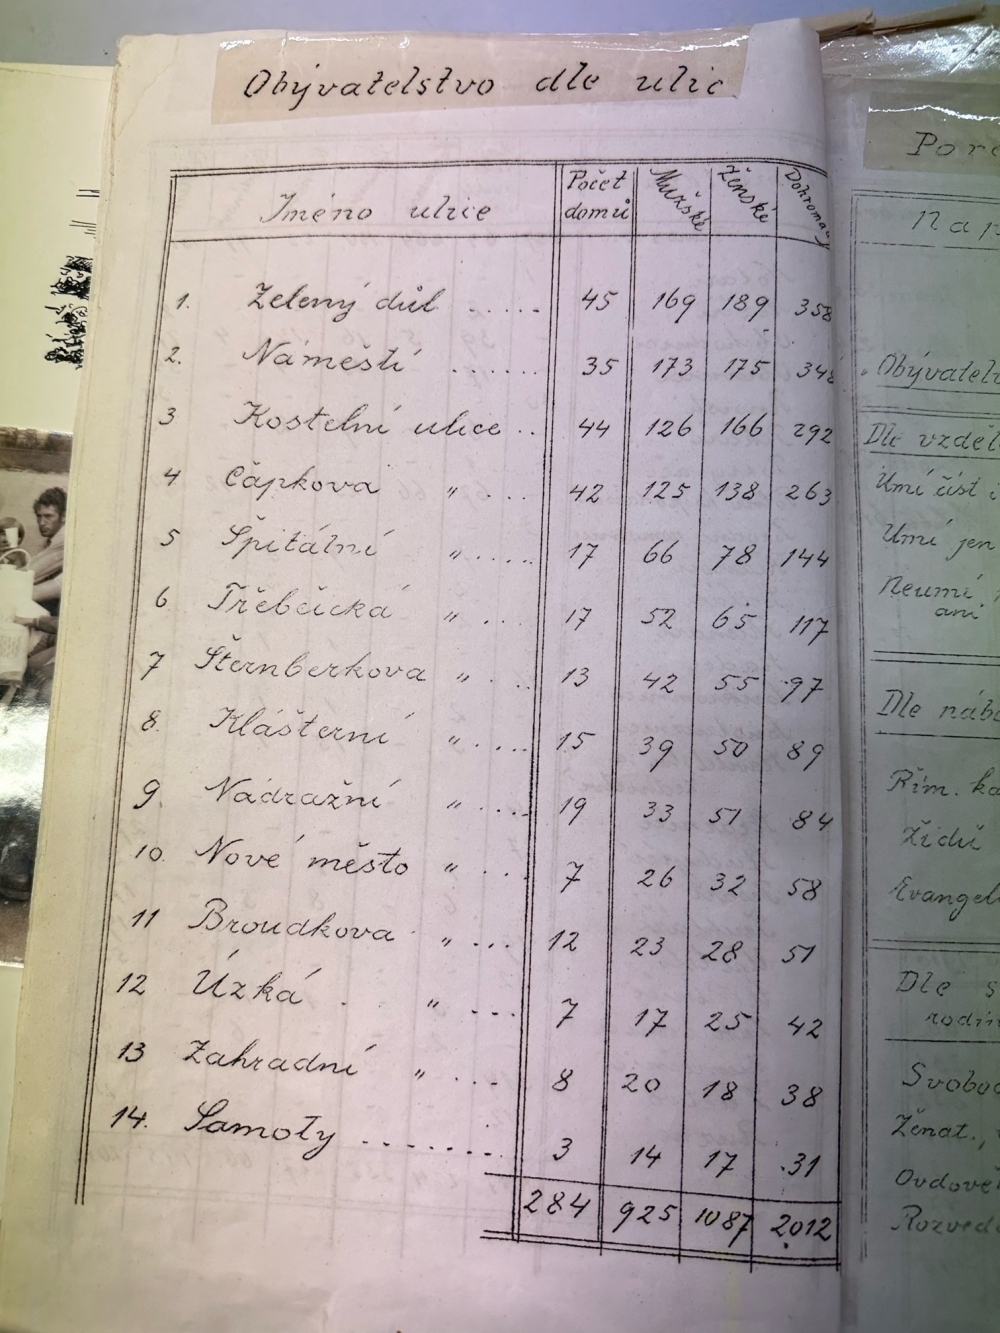 Obývatelstvo dle ulic
Jméno ulice Počet domů Mužské Ženské Dohromady
1. Zelený důl ...... 45 169 189 358
2. Náměstí ....... 35 173 175 348
3 Kostelní ulice .. 44 126 166 292
4 Čápkova „ ... 42 125 138 263
5 Špitální „ ..... 17 66 78 144
6 Třebčická „ ... 17 52 65 117
7 Šternberkova „ ... 13 42 55 97
8. Klášterní „ .... 15 39 50 89
9. Nádražní „ .... 19 33 51 84
10. Nové město „ ... 7 26 32 58
11 Broudkova „ ... 12 23 28 51
12 Úzká . „ ... 7 17 25 42
13 Zahradní „ ... 8 20 18 38
14. Samoty ......... 3 14 17 31
284 925 1087 2012
Dle vzděl
Umí číst
Umí jen
Neumí
ani
Dle nábo
Řím. ka
Židů
Dle s
rodin
Ženat.,